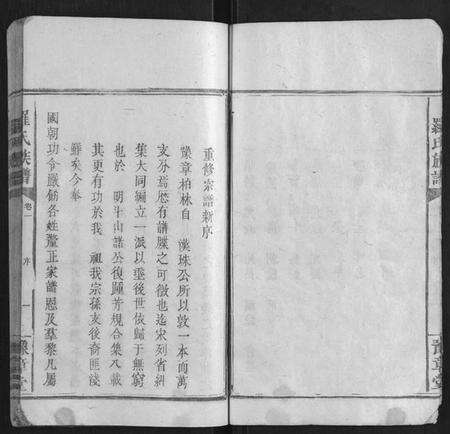 羅氏族譜
豫章堂
重修宗譜新序
豫章柏林自 漢珠公所以敦一本而萬
支分焉歷有譜牒之可徵也迄宋列省糾
集大同編立一派以垂後世依歸于無窮
也於 明斗山諸公復踵芳規合集入載
其更有功於我 祖我宗孫支後裔匪淺
鮮矣今奉
國朝功令嚴飭各姓釐正家譜恩及羣黎凡屬
羅氏族譜
卷一
序
一
豫章堂